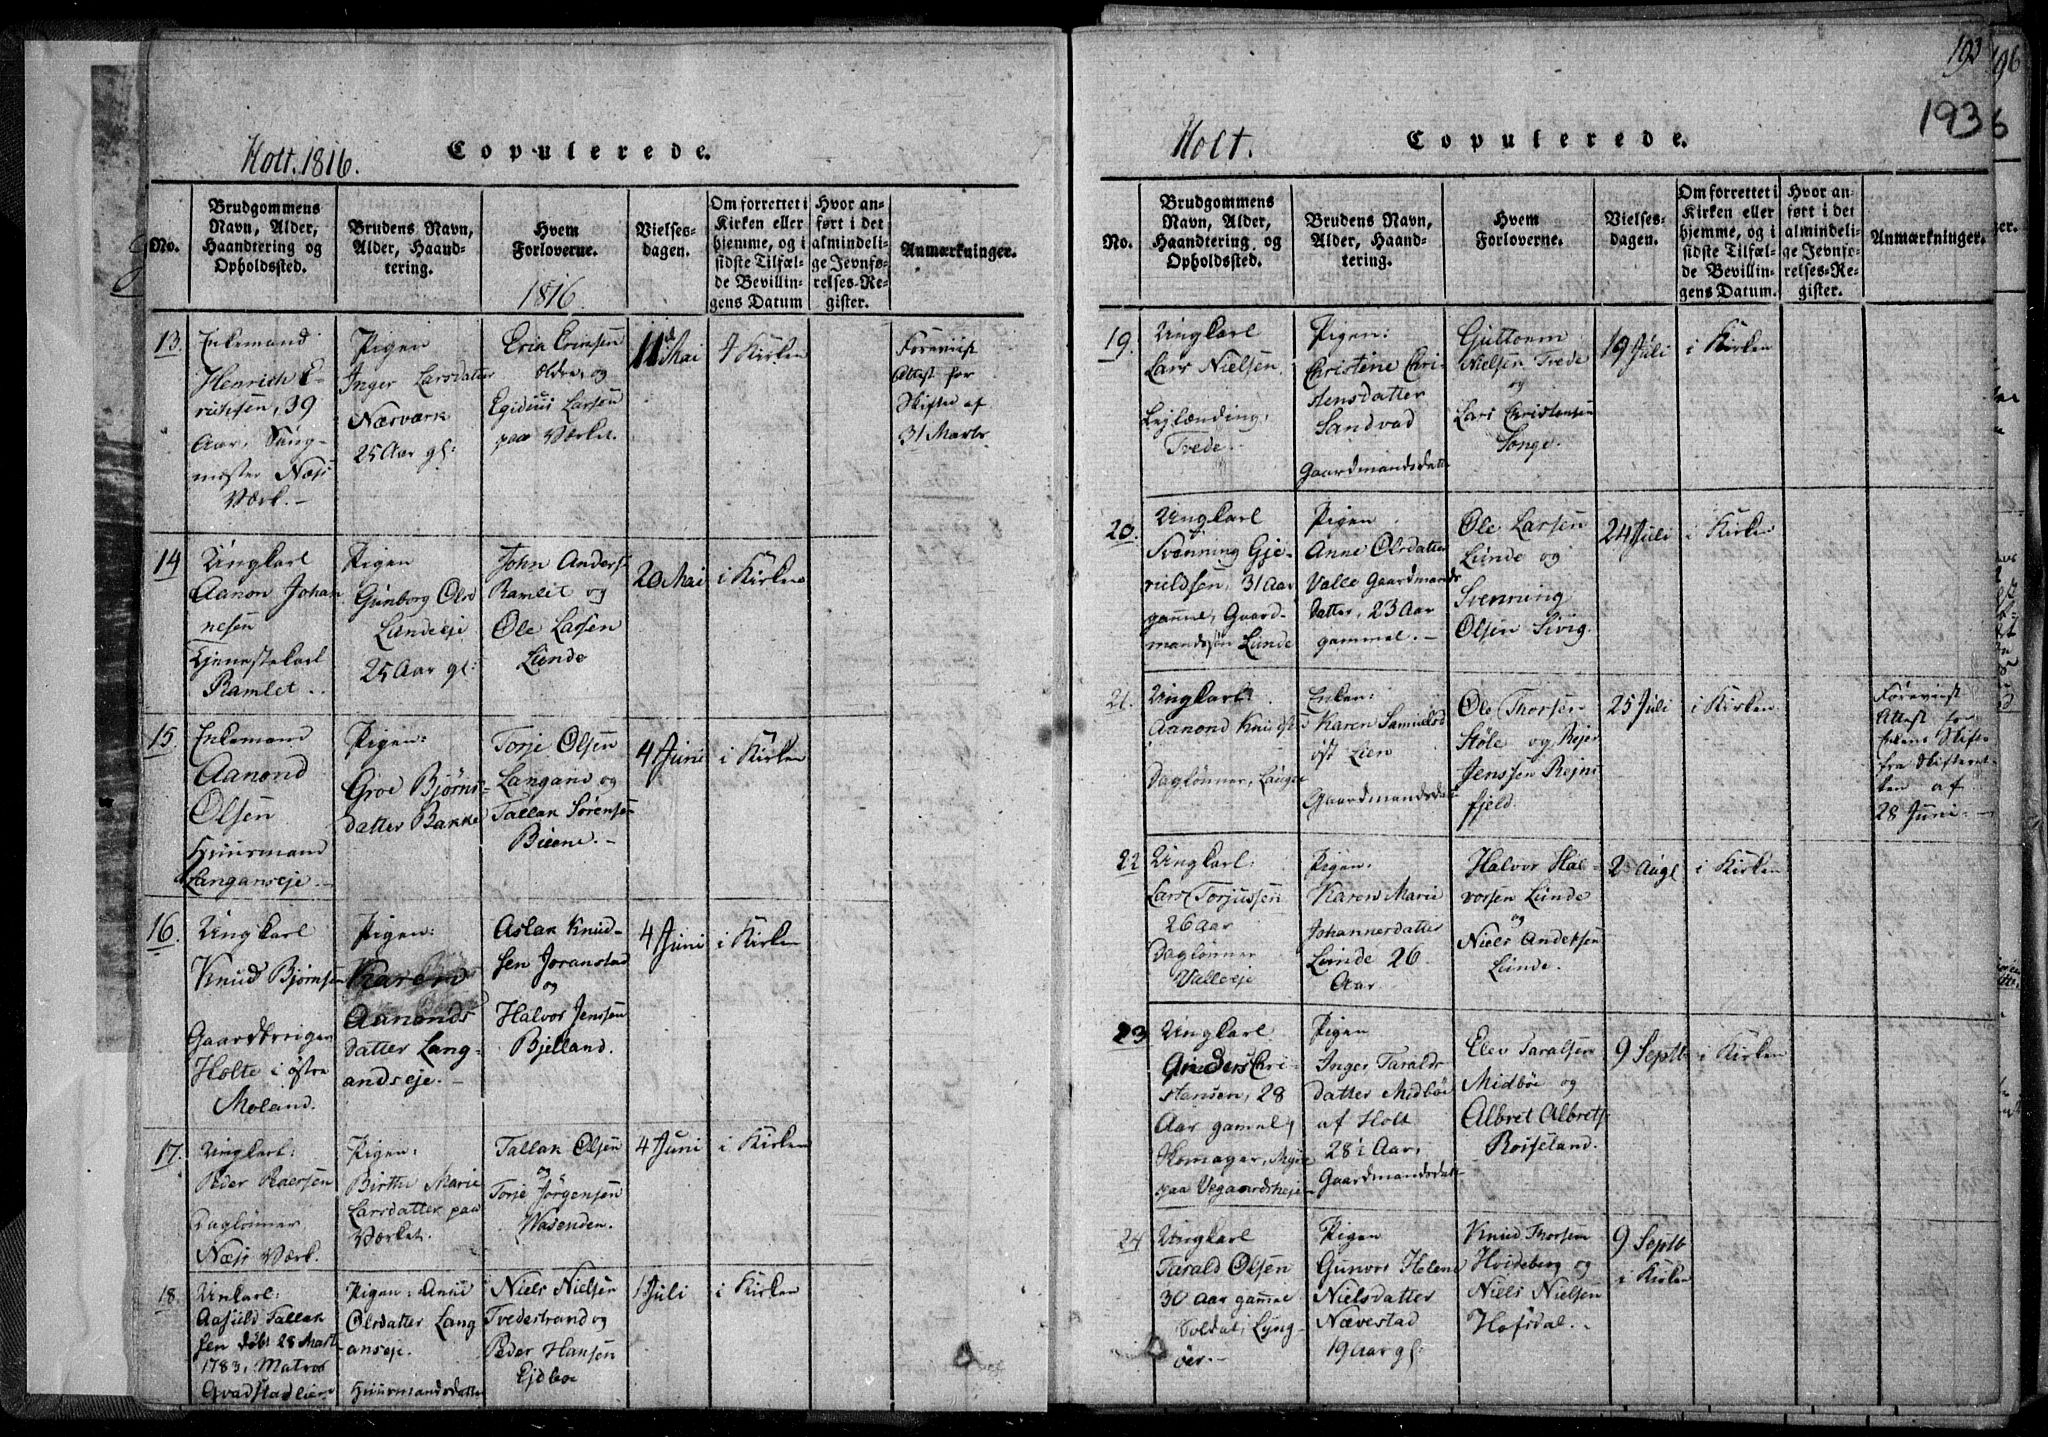 Holt. 1816.
Copulerede.
No.
Brudgommens
Navn, Alder,
Haandtering og
Opholdssted.
Brudens Navn,
Alder, Haand-
tering.
Hvem
Forloverne.
1816
Vielses-
dagen.
Om forrettet i
Kirken eller
hjemme, og i
sidste Tilfæl-
de Bevillin-
gens Datum
Hvor an-
ført i det
almindeli-
ge Jevnfø-
relses-Re-
gister.
Anmærkninger.
13.
Enkemand
Henrich E-
richsen, 39
Aar,
mester Næss
Værk.-
Pigen
Inger Larsdatter
Nærværk
25 Aar gl:
Erik Ericsen
ældre, og
Egidius Larsen
paa Værket.
11 Mai
I Kirken
Foreviist
Attest for
Skifte af
31 Marts
14
Ungkarl
Aanon Johan
nesen
Tjenestekarl
Ramlet..
Pigen
Gunborg Olsd
Landeeje
25 Aar gl:
John Anders:
Ramlet og
Ole Larsen
Lunde
20 Mai
i Kirken
15.
Enkemand
Aanond
Olsen
Huusmand
Langangseje.-
Pigen:
Groe Bjørns-
datter Bakke
Torje Olsen
Langang og
Tallak Sørensen
Biene.-
4 Juni
i Kirken
16.
Ungkarl
Knud Bjørnsen
Gaardbruger
Holte i østre
Moland.
Pigen:
Karen
Aanonds
datter Lang-
andseje.-
Aslak Knud-
sen Joranstad
og
Halvor Jenssen
Bjelland.
4 Juni
i Kirken
17.
Ungkarl:
Peder Pedersen
Daglønner
Næss Værk.
Pigen:
Birthe Marie
Larsdatter paa
Værket.
Tallak Olsen
og
Torje Jörgensen
Wasenden.
4 Juni
i Kirken
18.
Unkarl:
Aasuld Tallak
sen døbt 28 Mart
1783, Matros
Qvadstadlien
Pigen: Anne
Olsdatter Lang
anseje.
Huusmandsdatter
Niels Nielsen
Tvedestrand og
Peder Hansen
Ejdboe
1 Juli
i Kirken
193
193
Holt.
Copulerede.
No.
Brudgommens
Navn, Alder,
Haandtering og
Opholdssted.
Brudens Navn,
Alder, Haand-
tering.
Hvem
Forloverne.
Vielses-
dagen.
Om forrettet i
Kirken eller
hjemme, og i
sidste Tilfæl-
de Bevillin-
gens Datum.
Hvor an-
ført i det
almindeli-
ge Jevnfø-
relses-Re-
gister.
Anmærkninger.
19.
Ungkarl
Lars Nielsen
Lejlænding,
Tvede.-
Pigen:
Christine Chri-
stensdatter
Sandvad
Gaardmandsdatter
Guttorm
Nielsen Tvede
og
Lars Christensen
Songe.
19 Juli
i Kirken
20.
Ungkarl
Svenning Gje-
ruldsen, 31 Aar
gamel, Gaard-
mandssøn Lunde
Pigen
Anne Olsdatter
Valle Gaardmands
datter, 23 Aar
gammel.-
Ole Larsen
Lunde og
Svenning
Olsen Sivig.
24 Juli
i Kirken
21.
Ungkarl:
Aanond Knuds:
Daglønner, Lauget
Enken:
Karen Samuelsd
øst Lien
Gaardmandsdatt
Ole Thorsen
Støle og Rejer
Jenssen Rejns
fjeld.
25 Juli
i Kirken
Foreviist
Attest for
Enkens Skifte
fra Skifteret-
ten af
28 Juni.-
22
Ungkarl:
Lars Torjussen
26 Aar
Daglønner
Valleeje
Pigen:
Karen Marie
Johannesdatter
Lunde 26
Aar.
Halvor Hal-
vorsen Lunde
og
Niels Andersen
Lunde.
2 Augl
i Kirken
23
Ungkarl
Anders Chri-
stansen, 28
Aar gamel,
Skomager, Myre
paa Vegaardsheje
Pigen
Inger Taralds
datter Midbøe
af Holt
28 i Aar,
Gaardmandsdatt
Elev Taralsen
Midbøe og
Albret Albrets:
Roiseland.
9 Septb
i Kirken
24
Ungkarl
Tarald Olsen
30 Aar gamel
Soldat, Lyng-
öer.-
Pigen
Gunvor Helene
Nielsdatter
Nævestad
19 Aar gl:
Knud Thorsen
Hvideberg og
Niels Nielsen
Hofsdal.-
9 Septb
i Kirken